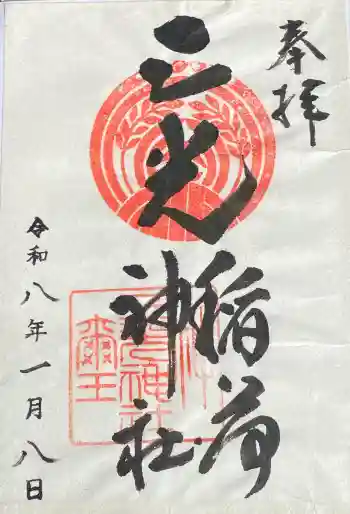 奉拝
三光稲荷神社
令和八年一月八日